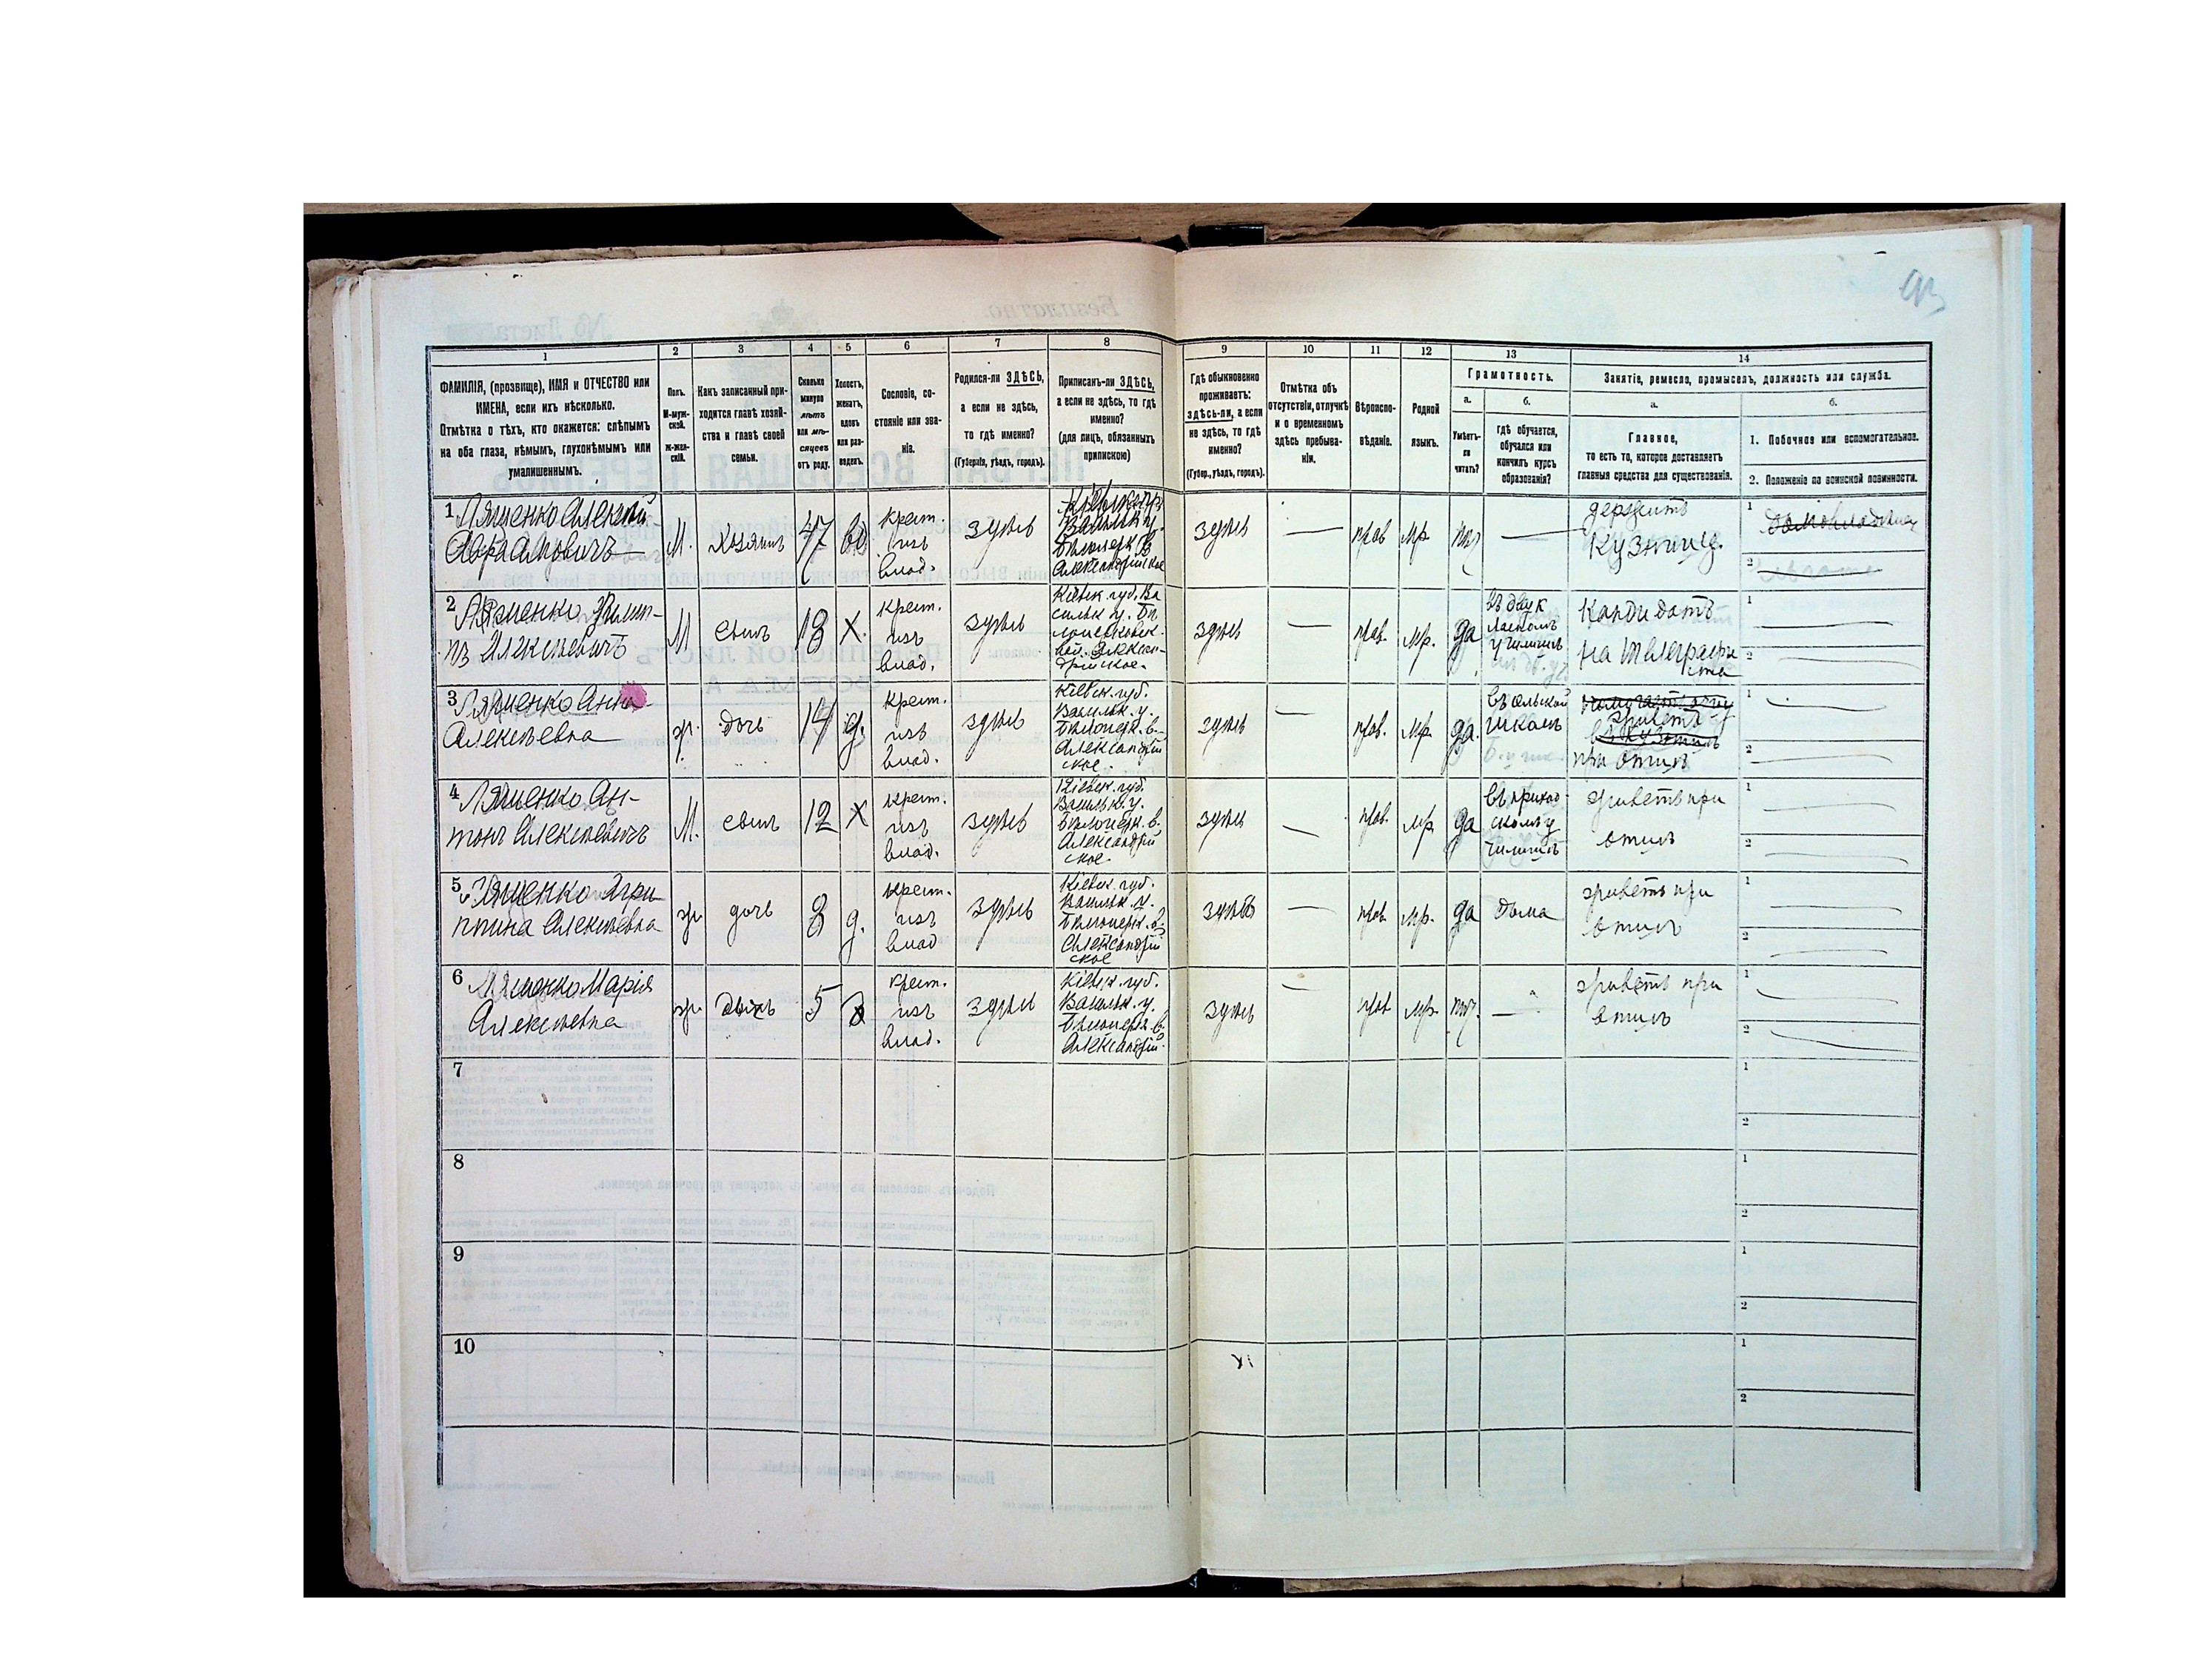 1 2 3 4 5 6 7 8 9 10 11 12 13 14
ФАМИЛІЯ, (прозвище), ИМЯ и ОТЧЕСТВО или
ИМЕНА, если ихъ нѣсколько.
Отмѣтка о тѣхъ, кто окажется: слѣпымъ
на оба глаза, нѣмымъ, глухонѣмымъ или
умалишеннымъ.
Полъ.
М-муж-
ской.
ж-жен-
скій.
Какъ записанный при-
ходится главѣ хозяй-
ства и главѣ своей
семьи.
Сколько
минуло
лѣтъ
или мѣ-
сяцевъ
отъ роду.
Холостъ,
женатъ,
вдовъ
или раз-
веденъ.
Сословіе, со-
стояніе или зва-
ніе.
Родился-ли ЗДѢСЬ,
а если не здѣсь,
то гдѣ именно?
(Губернія, уѣздъ, городъ).
Приписанъ-ли ЗДѢСЬ,
а если не здѣсь, то гдѣ
именно?
(для лицъ, обязанныхъ
припискою)
Гдѣ обыкновенно
проживаетъ:
здѣсь-ли, а если
не здѣсь, то гдѣ
именно?
(Губер., уѣздъ, городъ).
Отмѣтка объ
отсутствіи, отлучкѣ
и о временномъ
здѣсь пребыва-
ніи.
Вѣроиспо-
вѣданіе.
Родной
языкъ.
Грамотность.
а.
Умѣетъ-
ли
читать?
б.
гдѣ обучается,
обучался или
кончилъ курсъ
образованія?
Занятіе, ремесло, промыселъ, должность или служба.
а.
Главное,
то есть то, которое доставляетъ
главныя средства для существованія.
б.
1. Побочное или вспомогательное.
2. Положеніе по воинской повинности.
1 Ляшенко Алексѣй
Аврамовичъ
М.
Хозяинъ
47
вд
крест.
изъ
влад.
здѣсь
Кіевск. губ.
Васильк. у.
Бѣлоцерк. в.
Александрійское
здѣсь
прав
Мр.
держитъ
кузницу.
1
2
2 Ляшенко Филип-
пъ Алексѣевичъ
М
сынъ
18
х.
крест.
изъ
влад.
здѣсь
Кіевск. губ. Ва
сильк у. Бѣ
лоцерковск.
вол. Алексан-
дрійское.
здѣсь
прав.
Мр.
да
въ двук
ласномъ
училищѣ
кандидатъ
на телеграфи
ста
1
2
3 Ляшенко Анна
Алексѣевна
ж.
дочь
14
д.
крест.
изъ
влад.
здѣсь
Кіевск. губ.
Васильк. у.
Бѣлоцерк. в.
Александрій
ское.
здѣсь
прав.
Мр.
да.
въ сельской
школѣ
живетъ
при отцѣ
1
2
4 Ляшенко Ан-
тонъ Алексѣевичъ
М.
сынъ
12
х
крест.
изъ
влад.
здѣсь
Кіевск. губ.
Васильк. у.
Бѣлоцерк. в.
Александрій
ское.
здѣсь
прав.
мр.
да
въ приход
скомъ у
чилищѣ
живетъ при
отцѣ
1
2
5 Ляшенко Агри
ппина Алексѣевна
ж
дочь
8
д.
крест.
изъ
влад
здѣсь
Кіевск. губ.
Васильк. у.
Бѣлоцерк. в.
Александрій
ское
здѣсь
прав
мр.
да
дома
живетъ при
отцѣ
1
2
6 Ляшенко Марія
Алексѣевна
ж.
дочь
5
д
крест.
изъ
влад.
здѣсь
Кіевск. губ.
Васильк. у.
Бѣлоцерк. в.
Александрій.
здѣсь
прав
мр.
живетъ при
отцѣ
1
2
7
1
2
8
1
2
9
1
2
10
1
2